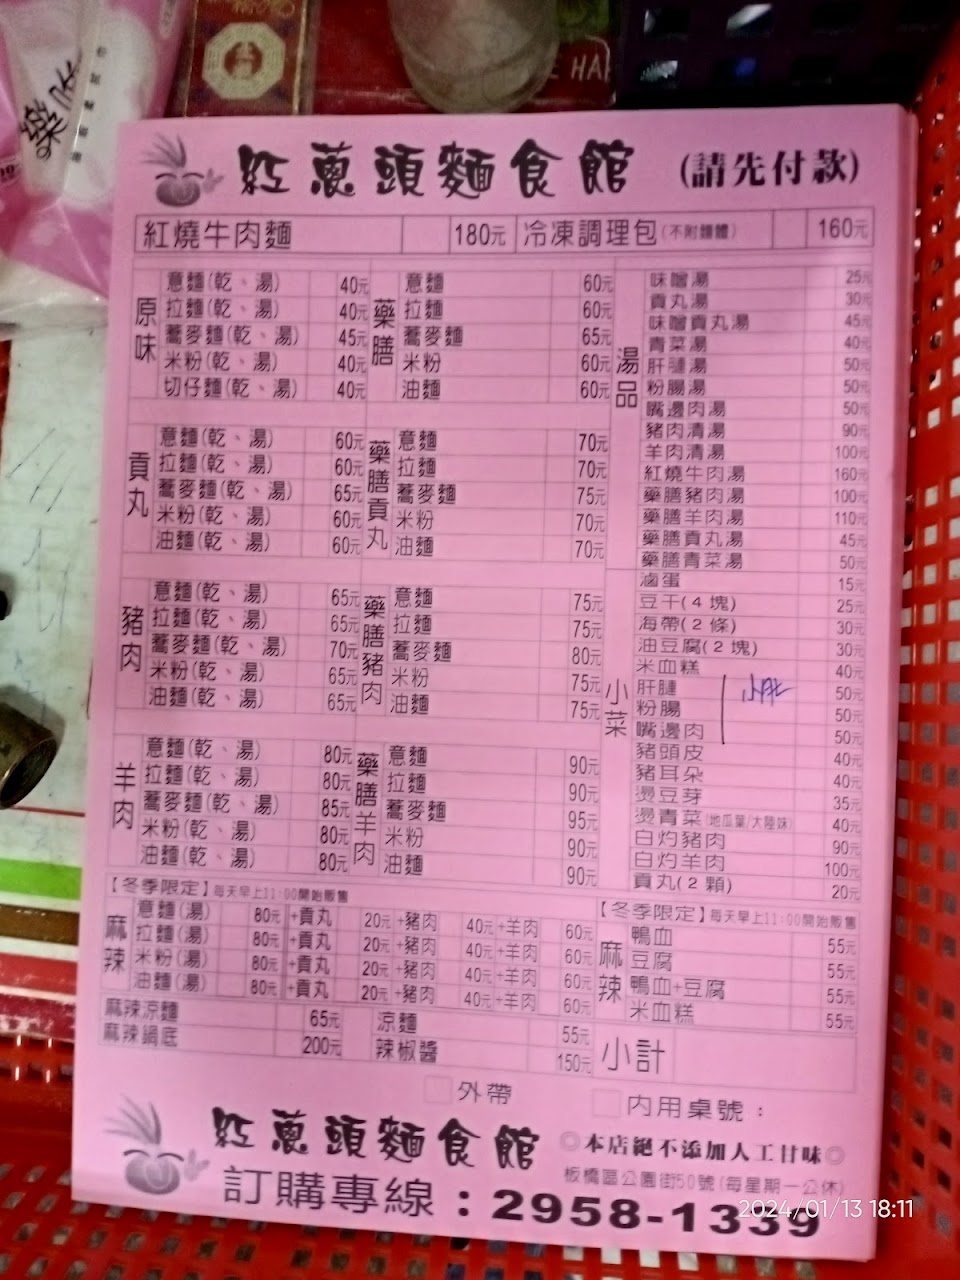 紅蔥頭麵食館 (請先付款)
紅燒牛肉麵 180元 冷凍調理包(不附麵體) 160元
原味
意麵(乾、湯) 40元
拉麵(乾、湯) 40元
蕎麥麵(乾、湯) 45元
米粉(乾、湯) 40元
切仔麵(乾、湯) 40元
貢丸
意麵(乾、湯) 60元
拉麵(乾、湯) 60元
蕎麥麵(乾、湯) 65元
米粉(乾、湯) 60元
油麵(乾、湯) 60元
豬肉
意麵(乾、湯) 65元
拉麵(乾、湯) 65元
蕎麥麵(乾、湯) 70元
米粉(乾、湯) 65元
油麵(乾、湯) 65元
羊肉
意麵(乾、湯) 80元
拉麵(乾、湯) 80元
蕎麥麵(乾、湯) 85元
米粉(乾、湯) 80元
油麵(乾、湯) 80元
藥膳
意麵 60元
拉麵 60元
蕎麥麵 65元
米粉 60元
油麵 60元
藥膳貢丸
意麵 70元
拉麵 70元
蕎麥麵 75元
米粉 70元
油麵 70元
藥膳豬肉
意麵 75元
拉麵 75元
蕎麥麵 80元
米粉 75元
油麵 75元
藥膳羊肉
意麵 90元
拉麵 90元
蕎麥麵 95元
米粉 90元
油麵 90元
湯品
味噌湯 25元
貢丸湯 30元
味噌貢丸湯 45元
青菜湯 40元
肝腱湯 50元
粉腸湯 50元
嘴邊肉湯 50元
豬肉清湯 90元
羊肉清湯 100元
紅燒牛肉湯 160元
藥膳豬肉湯 100元
藥膳羊肉湯 110元
藥膳貢丸湯 45元
藥膳青菜湯 50元
小菜
滷蛋 15元
豆干(4塊) 25元
海帶(2條) 30元
油豆腐(2塊) 30元
米血糕 40元
肝腱 50元
粉腸 50元
嘴邊肉 50元
豬頭皮 40元
豬耳朵 40元
燙豆芽 35元
燙青菜(地瓜葉/大陸妹) 40元
白灼豬肉 90元
白灼羊肉 100元
貢丸(2顆) 20元
【冬季限定】每天早上11:00開始販售
麻辣
意麵(湯) 80元 +貢丸 20元 +豬肉 40元 +羊肉 60元
拉麵(湯) 80元 +貢丸 20元 +豬肉 40元 +羊肉 60元
米粉(湯) 80元 +貢丸 20元 +豬肉 40元 +羊肉 60元
油麵(湯) 80元 +貢丸 20元 +豬肉 40元 +羊肉 60元
【冬季限定】每天早上11:00開始販售
麻辣
鴨血 55元
豆腐 55元
鴨血+豆腐 55元
米血糕 55元
麻辣涼麵 65元 涼麵 55元
麻辣鍋底 200元 辣椒醬 150元
小計
外帶 內用桌號:
紅蔥頭麵食館 ◎本店絕不添加人工甘味◎
板橋區公園街50號(每星期一公休)
訂購專線:2958-1339
2024/01/13 18:11